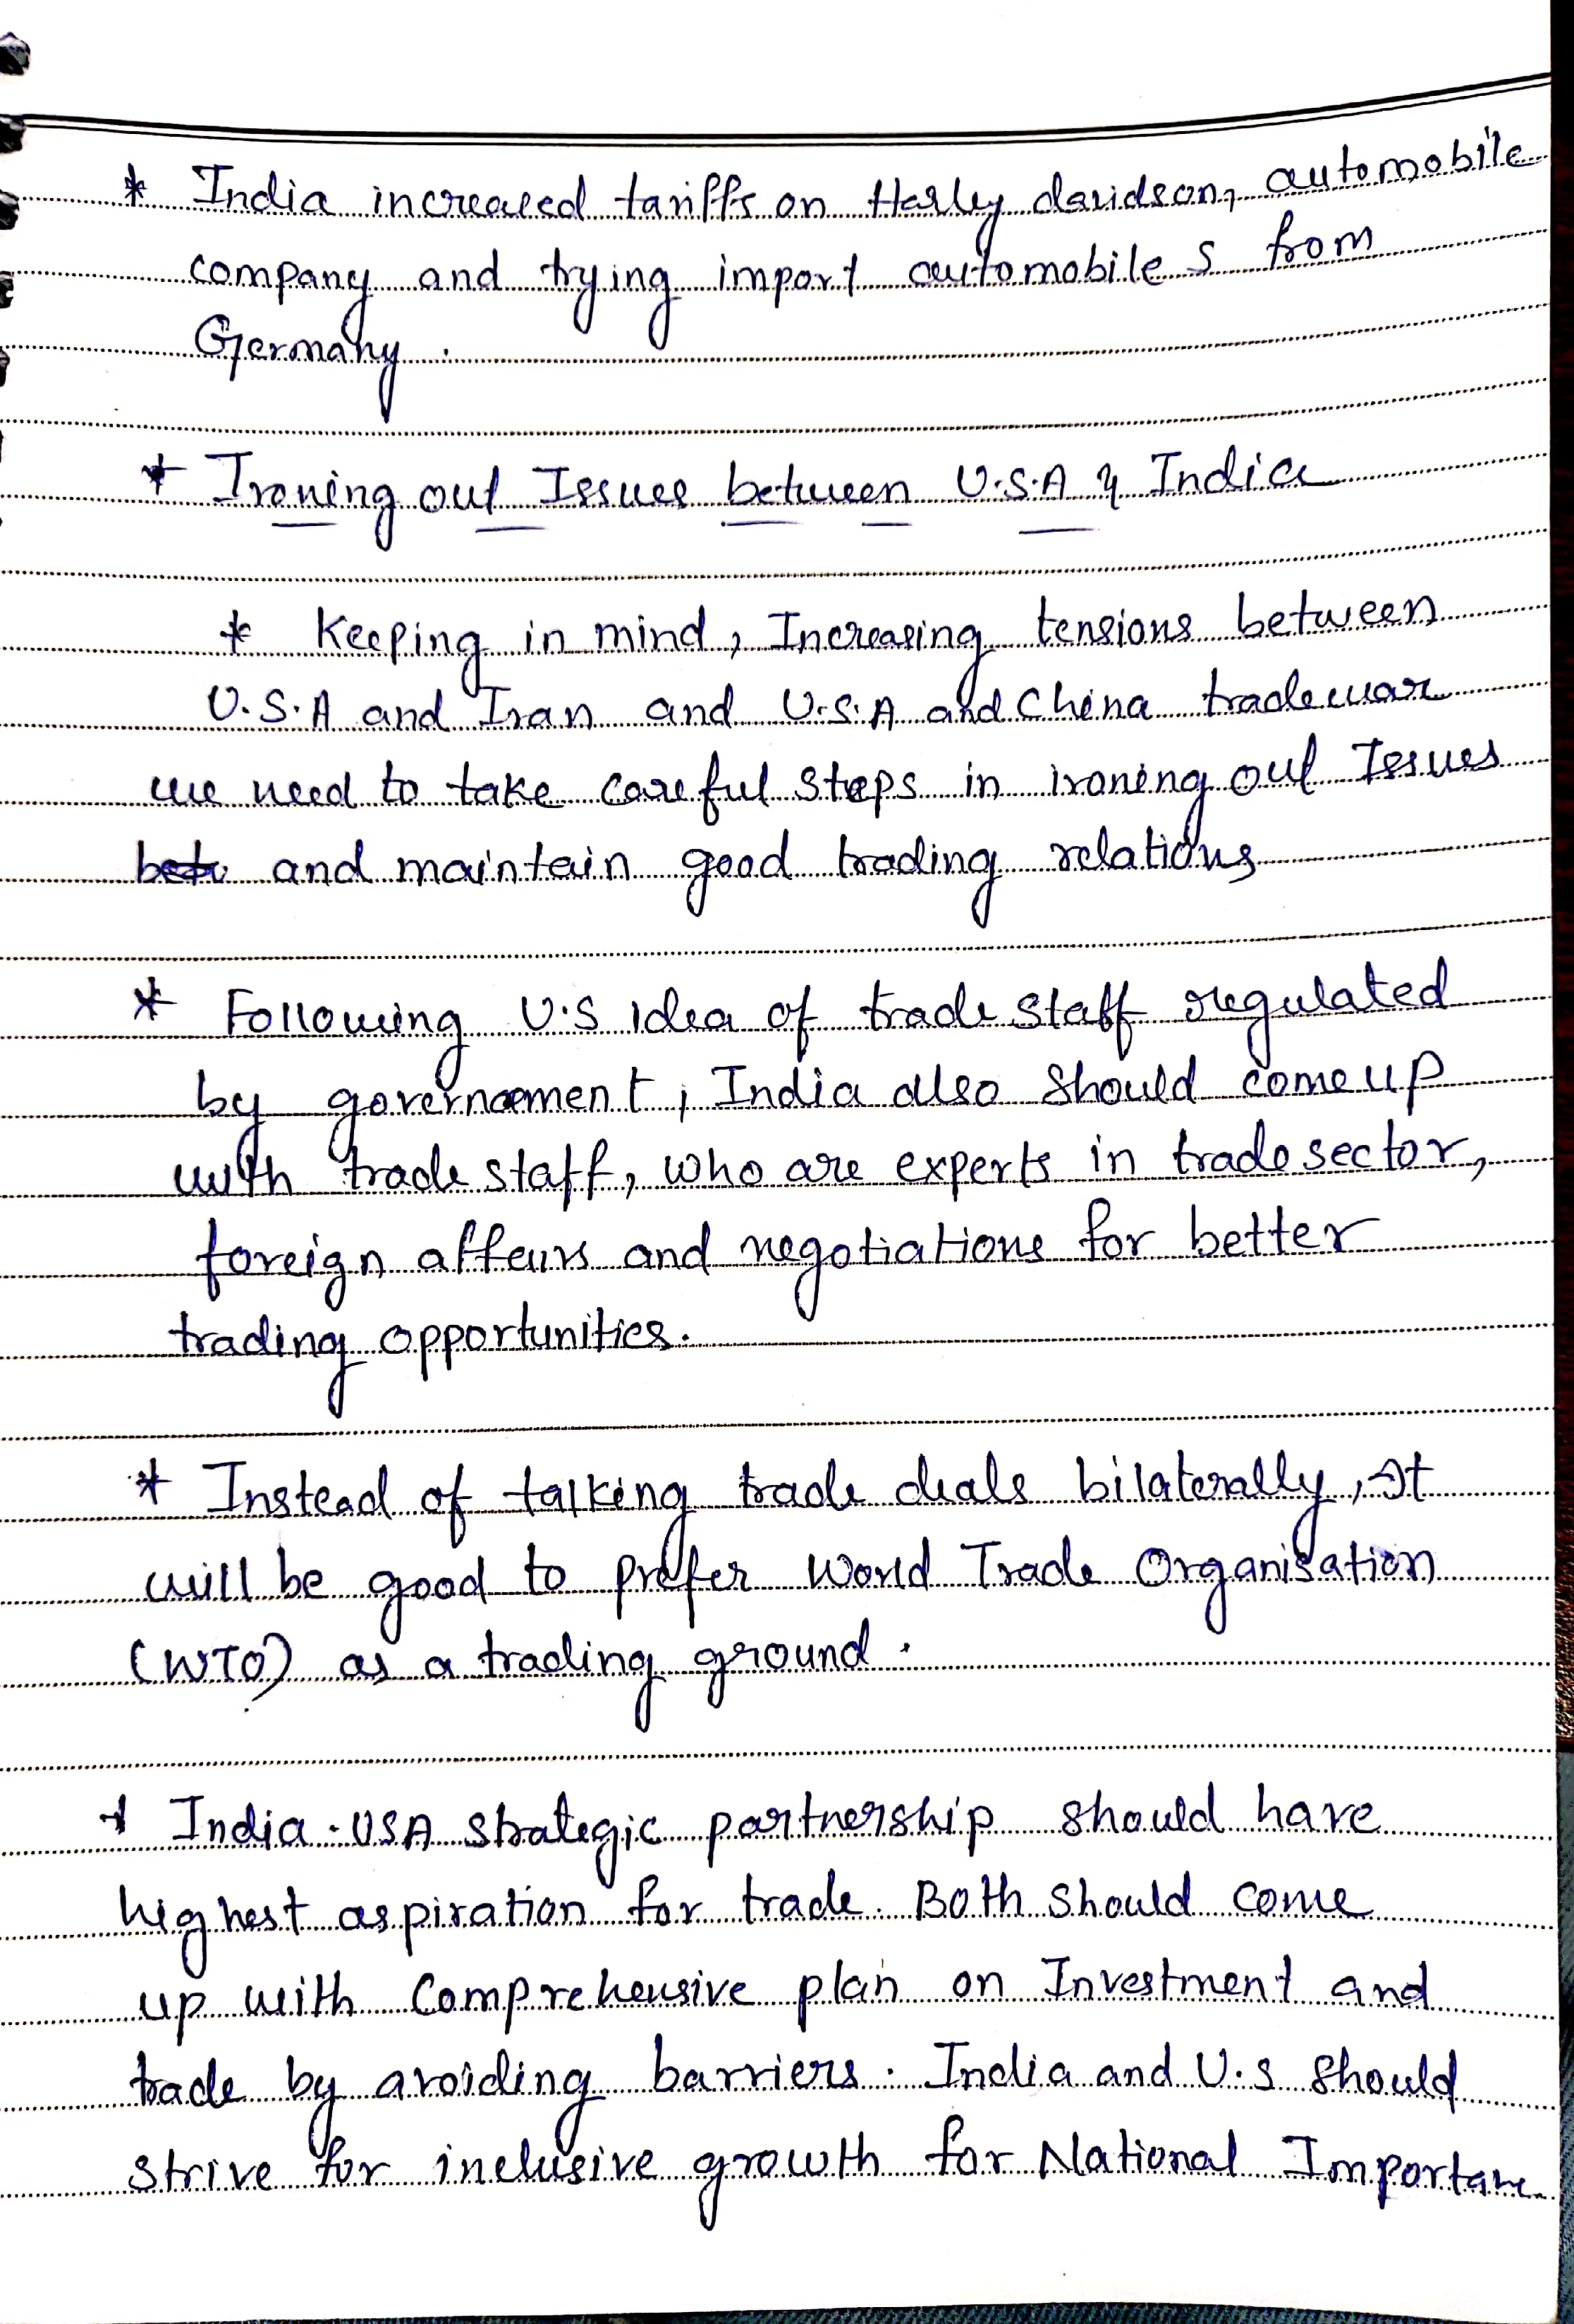 * India increased tariffs on Harley davidson, automobile
company and trying import automobiles from
Germany.
* Ironing out Issues between U.S.A & India
* Keeping in mind, Increasing tensions between
U.S.A and Iran and U.S.A and China tradewar
we need to take careful steps in ironing out Issues
and maintain good trading relations
* Following U.S idea of trade staff regulated
by government, India also should come up
with trade staff, who are experts in trade sector,
foreign affairs and negotiations for better
trading opportunities.
* Instead of talking trade deals bilaterally, It
will be good to prefer World Trade Organisation
(WTO) as a trading ground.
* India-USA Strategic partnership should have
highest aspiration for trade. Both should come
up with Comprehensive plan on Investment and
trade by avoiding barriers. India and U.S should
strive for inclusive growth for National